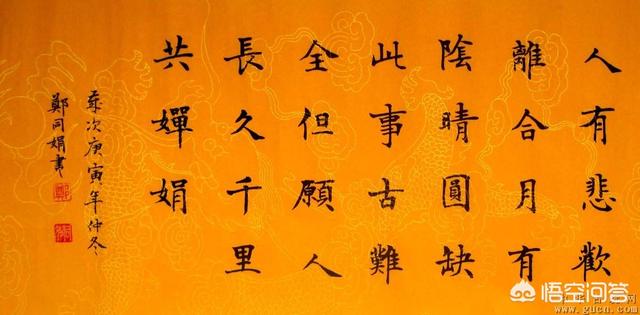 人有悲歡
離合月有
陰晴圓缺
此事古難
全但願人
長久千里
共嬋娟
歲次庚寅年仲冬
鄭同娟書
悟空问答
www.gucn.com